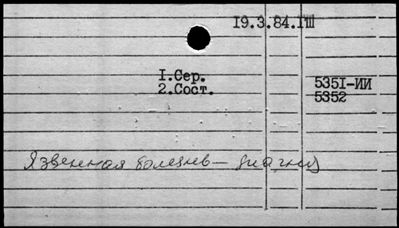 19.3.84.1Ш
1.Сер.
2.Сост.
5351-ИИ
5352
Язвенная болезнь — диагноз